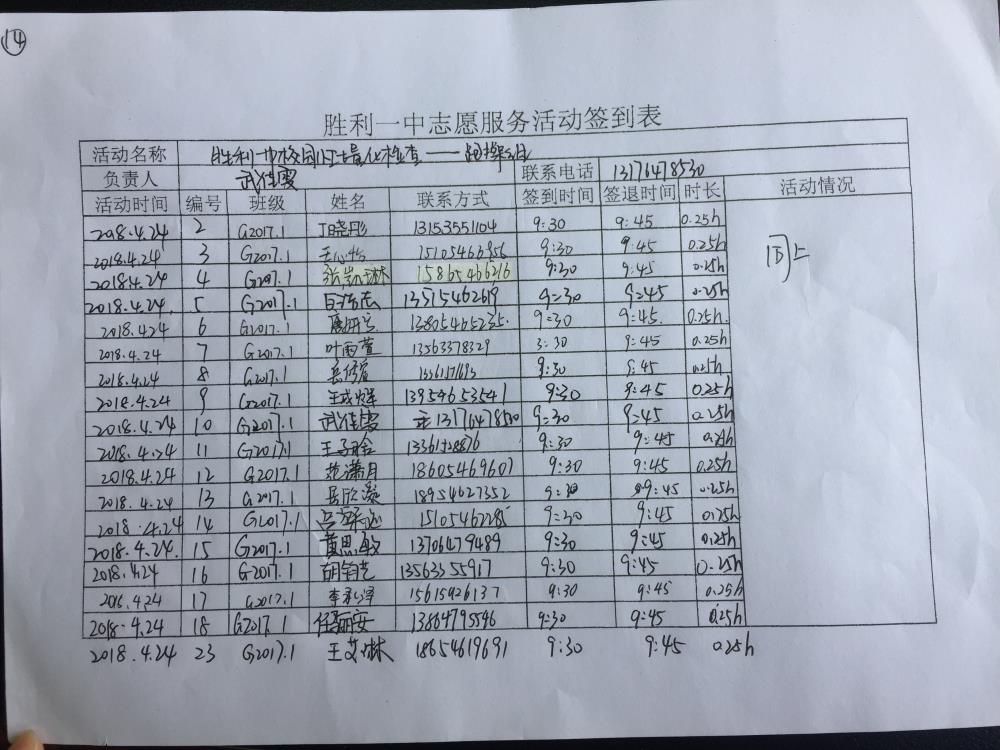 14
胜利一中志愿服务活动签到表
活动名称 胜利一中校园卫生量化检查——
负责人 武佳雯 联系电话 13176478530
活动时间 编号 班级 姓名 联系方式 签到时间 签退时间 时长 活动情况
2018.4.24 2 G2017.1 丁晓彤 13153551104 9:30 9:45 0.25h 同上
2018.4.24 3 G2017.1 王心怡 9:30 9:45 0.25h
2018.4.24 4 G2017.1 15865466216 9:30 9:45 0.25h
2018.4.24. 5 G2017.1 9:30 9:45 0.25h
2018.4.24 6 G2017.1 9:30 9:45. 0.25h.
2018.4.24 7 G2017.1 叶雨萱 13563378329 3:30 9:45 0.25h
2018.4.24 8 G2017.1 9:30 9:45 0.25h
2018.4.24 9 G2017.1 13954653541 9:30 9:45 0.25h
2018.4.24 10 G2017.1 武佳雯 13176478530 9:30 9:45 0.25h
2018.4.24 11 G2017.1 9:30 9:45 0.25h
2018.4.24 12 G2017.1 范潇月 18605469607 9:30 9:45 0.25h
2018.4.24 13 G2017.1 18954627352 9:30 9:45 0.25h
2018.4.24 14 G2017.1 15105462285 9:30 9:45 0.25h
2018.4.24. 15 G2017.1 黄思敏 13706479489 9:30 9:45 0.25h
2018.4.24 16 G2017.1 13563355917 9:30 9:45 0.25h
2018.4.24 17 G2017.1 15615926137 9:30 9:45 0.25h
2018.4.24 18 G2017.1 任丽安 13864795546 9:30 9:45 0.25h
2018.4.24 23 G2017.1 王艾琳 18654619691 9:30 9:45 0.25h